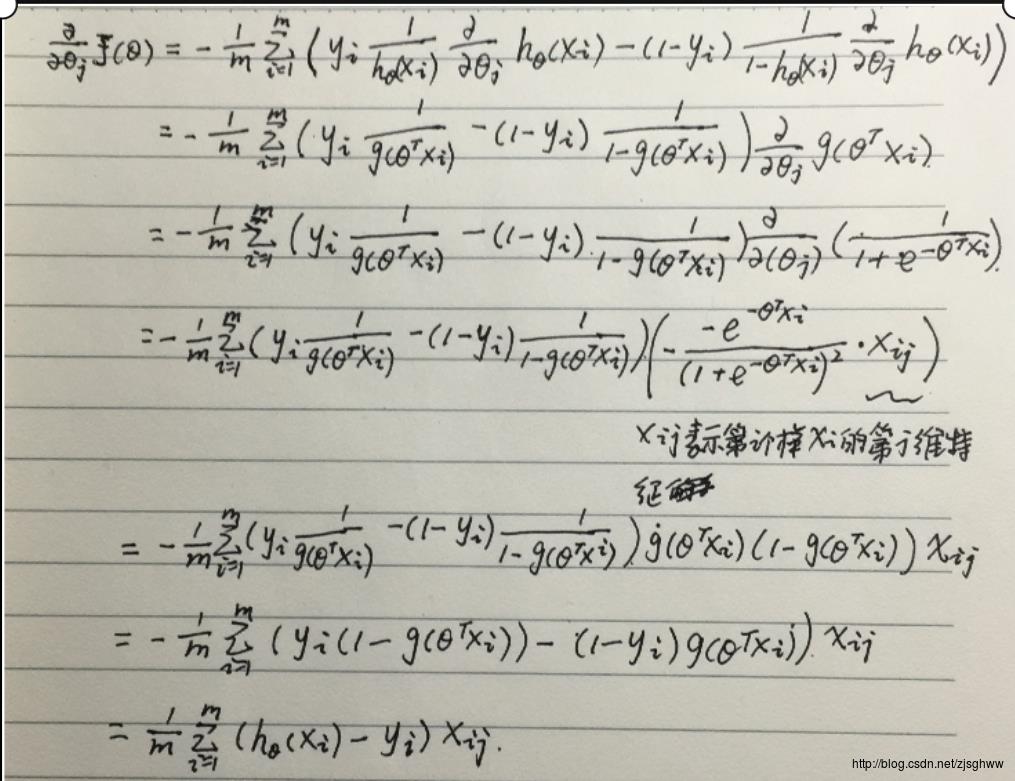 ∂/∂θj J(θ) = - 1/m Σ_{i=1}^{m} ( yi 1/hθ(xi) ∂/∂θj hθ(xi) - (1-yi) 1/(1-hθ(xi)) ∂/∂θj hθ(xi) )
= - 1/m Σ_{i=1}^{m} ( yi 1/g(θᵀxi) - (1-yi) 1/(1-g(θᵀxi)) ) ∂/∂θj g(θᵀxi)
= - 1/m Σ_{i=1}^{m} ( yi 1/g(θᵀxi) - (1-yi) 1/(1-g(θᵀxi)) ) ∂/∂(θj) ( 1/(1+e^{-θᵀxi}) )
= - 1/m Σ_{i=1}^{m} ( yi 1/g(θᵀxi) - (1-yi) 1/(1-g(θᵀxi)) ) ( - -e^{-θᵀxi}/(1+e^{-θᵀxi})² · xij )
xij表示第i个样xi的第j维特
征
= - 1/m Σ_{i=1}^{m} ( yi 1/g(θᵀxi) - (1-yi) 1/(1-g(θᵀxi)) ) g(θᵀxi) (1-g(θᵀxi)) xij
= - 1/m Σ_{i=1}^{m} ( yi (1-g(θᵀxi)) - (1-yi) g(θᵀxi) ) xij
= 1/m Σ_{i=1}^{m} ( hθ(xi) - yi ) xij.
http://blog.csdn.net/zjsghww